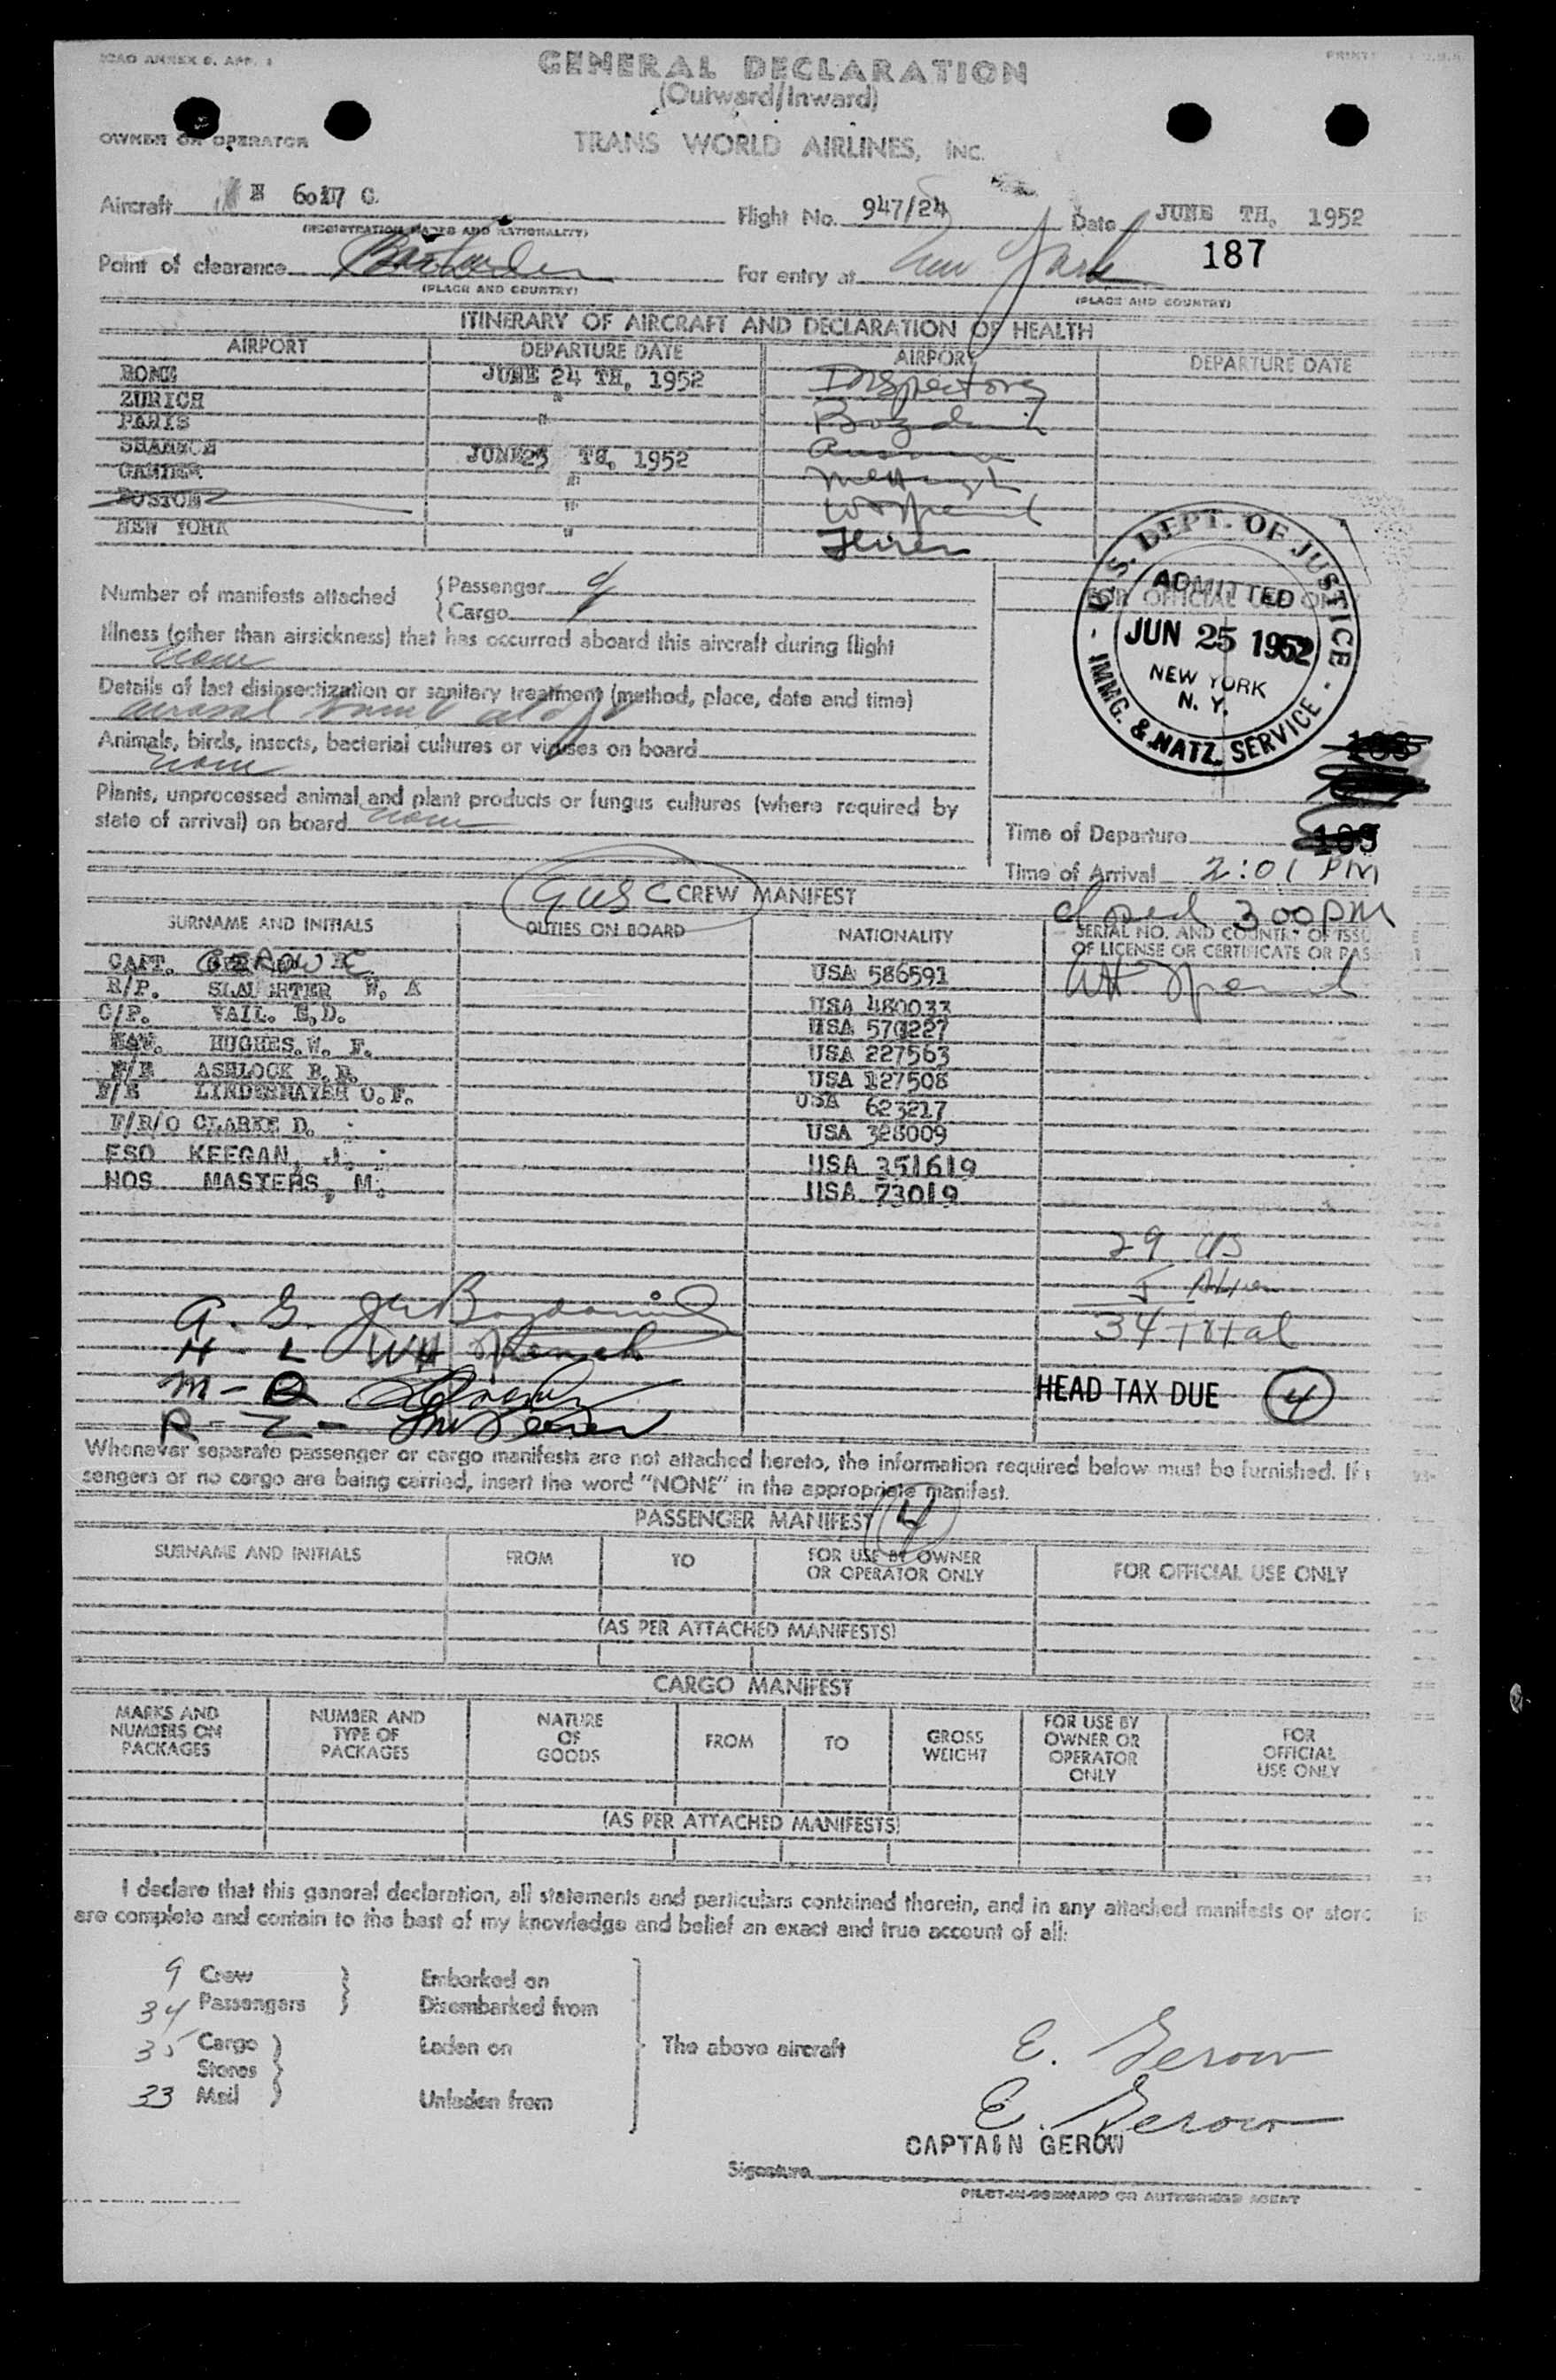 ICAO ANNEX 9, APP. 1
GENERAL DECLARATION
(Outward/Inward)
OWNER OR OPERATOR
TRANS WORLD AIRLINES, INC.
Aircraft N 6017 C Flight No. 947/24 Date JUNE TH, 1952
(REGISTRATION MARKS AND NATIONALITY)
187
Point of clearance For entry at New York
(PLACE AND COUNTRY) (PLACE AND COUNTRY)
ITINERARY OF AIRCRAFT AND DECLARATION OF HEALTH
AIRPORT DEPARTURE DATE AIRPORT DEPARTURE DATE
ROME JUNE 24 TH, 1952 Inspectors
ZURICH "
PARIS "
SHANNON JUNE 25 TH, 1952
GANDER "
BOSTON "
NEW YORK "
Number of manifests attached { Passenger
{ Cargo
Illness (other than airsickness) that has occurred aboard this aircraft during flight
none
Details of last disinsectization or sanitary treatment (method, place, date and time)
aerosol bomb
Animals, birds, insects, bacterial cultures or viruses on board
none
Plants, unprocessed animal and plant products or fungus cultures (where required by
state of arrival) on board none
FOR OFFICIAL USE ONLY
U.S. DEPT. OF JUSTICE
ADMITTED
JUN 25 1952
NEW YORK
N. Y.
IMMG. & NATZ. SERVICE
Time of Departure
Time of Arrival 2:01 PM
3 00 PM
CREW MANIFEST
SURNAME AND INITIALS DUTIES ON BOARD NATIONALITY SERIAL NO. AND COUNTRY OF ISSU
OF LICENSE OR CERTIFICATE OR PAS
CAPT. GEROW E USA 586591
R/P. SLAUGHTER W. A USA 480033
C/P. VAIL. E,D. USA 570227
NAV. HUGHES. W. F. USA 227563
F/E ASHLOCK B.R. USA 127508
F/E LINDERMAYER O.F. USA 623217
F/R/O CLARKE D. USA 328009
FSO KEEGAN, J. USA 351619
HOS MASTERS, M. USA 73019
29 US
5 Alien
34 Total
A. G.
H - L
M - Q
R - Z -
HEAD TAX DUE 4
Whenever separate passenger or cargo manifests are not attached hereto, the information required below must be furnished. If
sengers or no cargo are being carried, insert the word "NONE" in the appropriate manifest.
PASSENGER MANIFEST 4
SURNAME AND INITIALS FROM TO FOR USE BY OWNER OR OPERATOR ONLY FOR OFFICIAL USE ONLY
(AS PER ATTACHED MANIFESTS)
CARGO MANIFEST
MARKS AND NUMBERS ON PACKAGES NUMBER AND TYPE OF PACKAGES NATURE OF GOODS FROM TO GROSS WEIGHT FOR USE BY OWNER OR OPERATOR ONLY FOR OFFICIAL USE ONLY
(AS PER ATTACHED MANIFESTS)
I declare that this general declaration, all statements and particulars contained therein, and in any attached manifests or store is
are complete and contain to the best of my knowledge and belief an exact and true account of all:
9 Crew } Embarked on
34 Passengers } Disembarked from
35 Cargo } Laden on The above aircraft
Stores }
33 Mail } Unladen from
E. Gerow
E. Gerow
CAPTAIN GEROW
Signature
PILOT-IN-COMMAND OR AUTHORISED AGENT